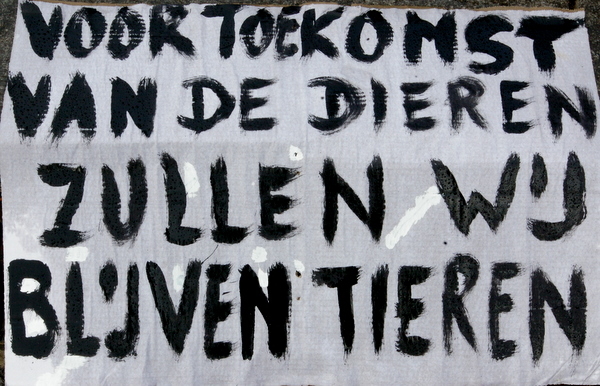 VOOR TOEKOMST
VAN DE DIEREN
ZULLEN WIJ
BLIJVEN TIEREN